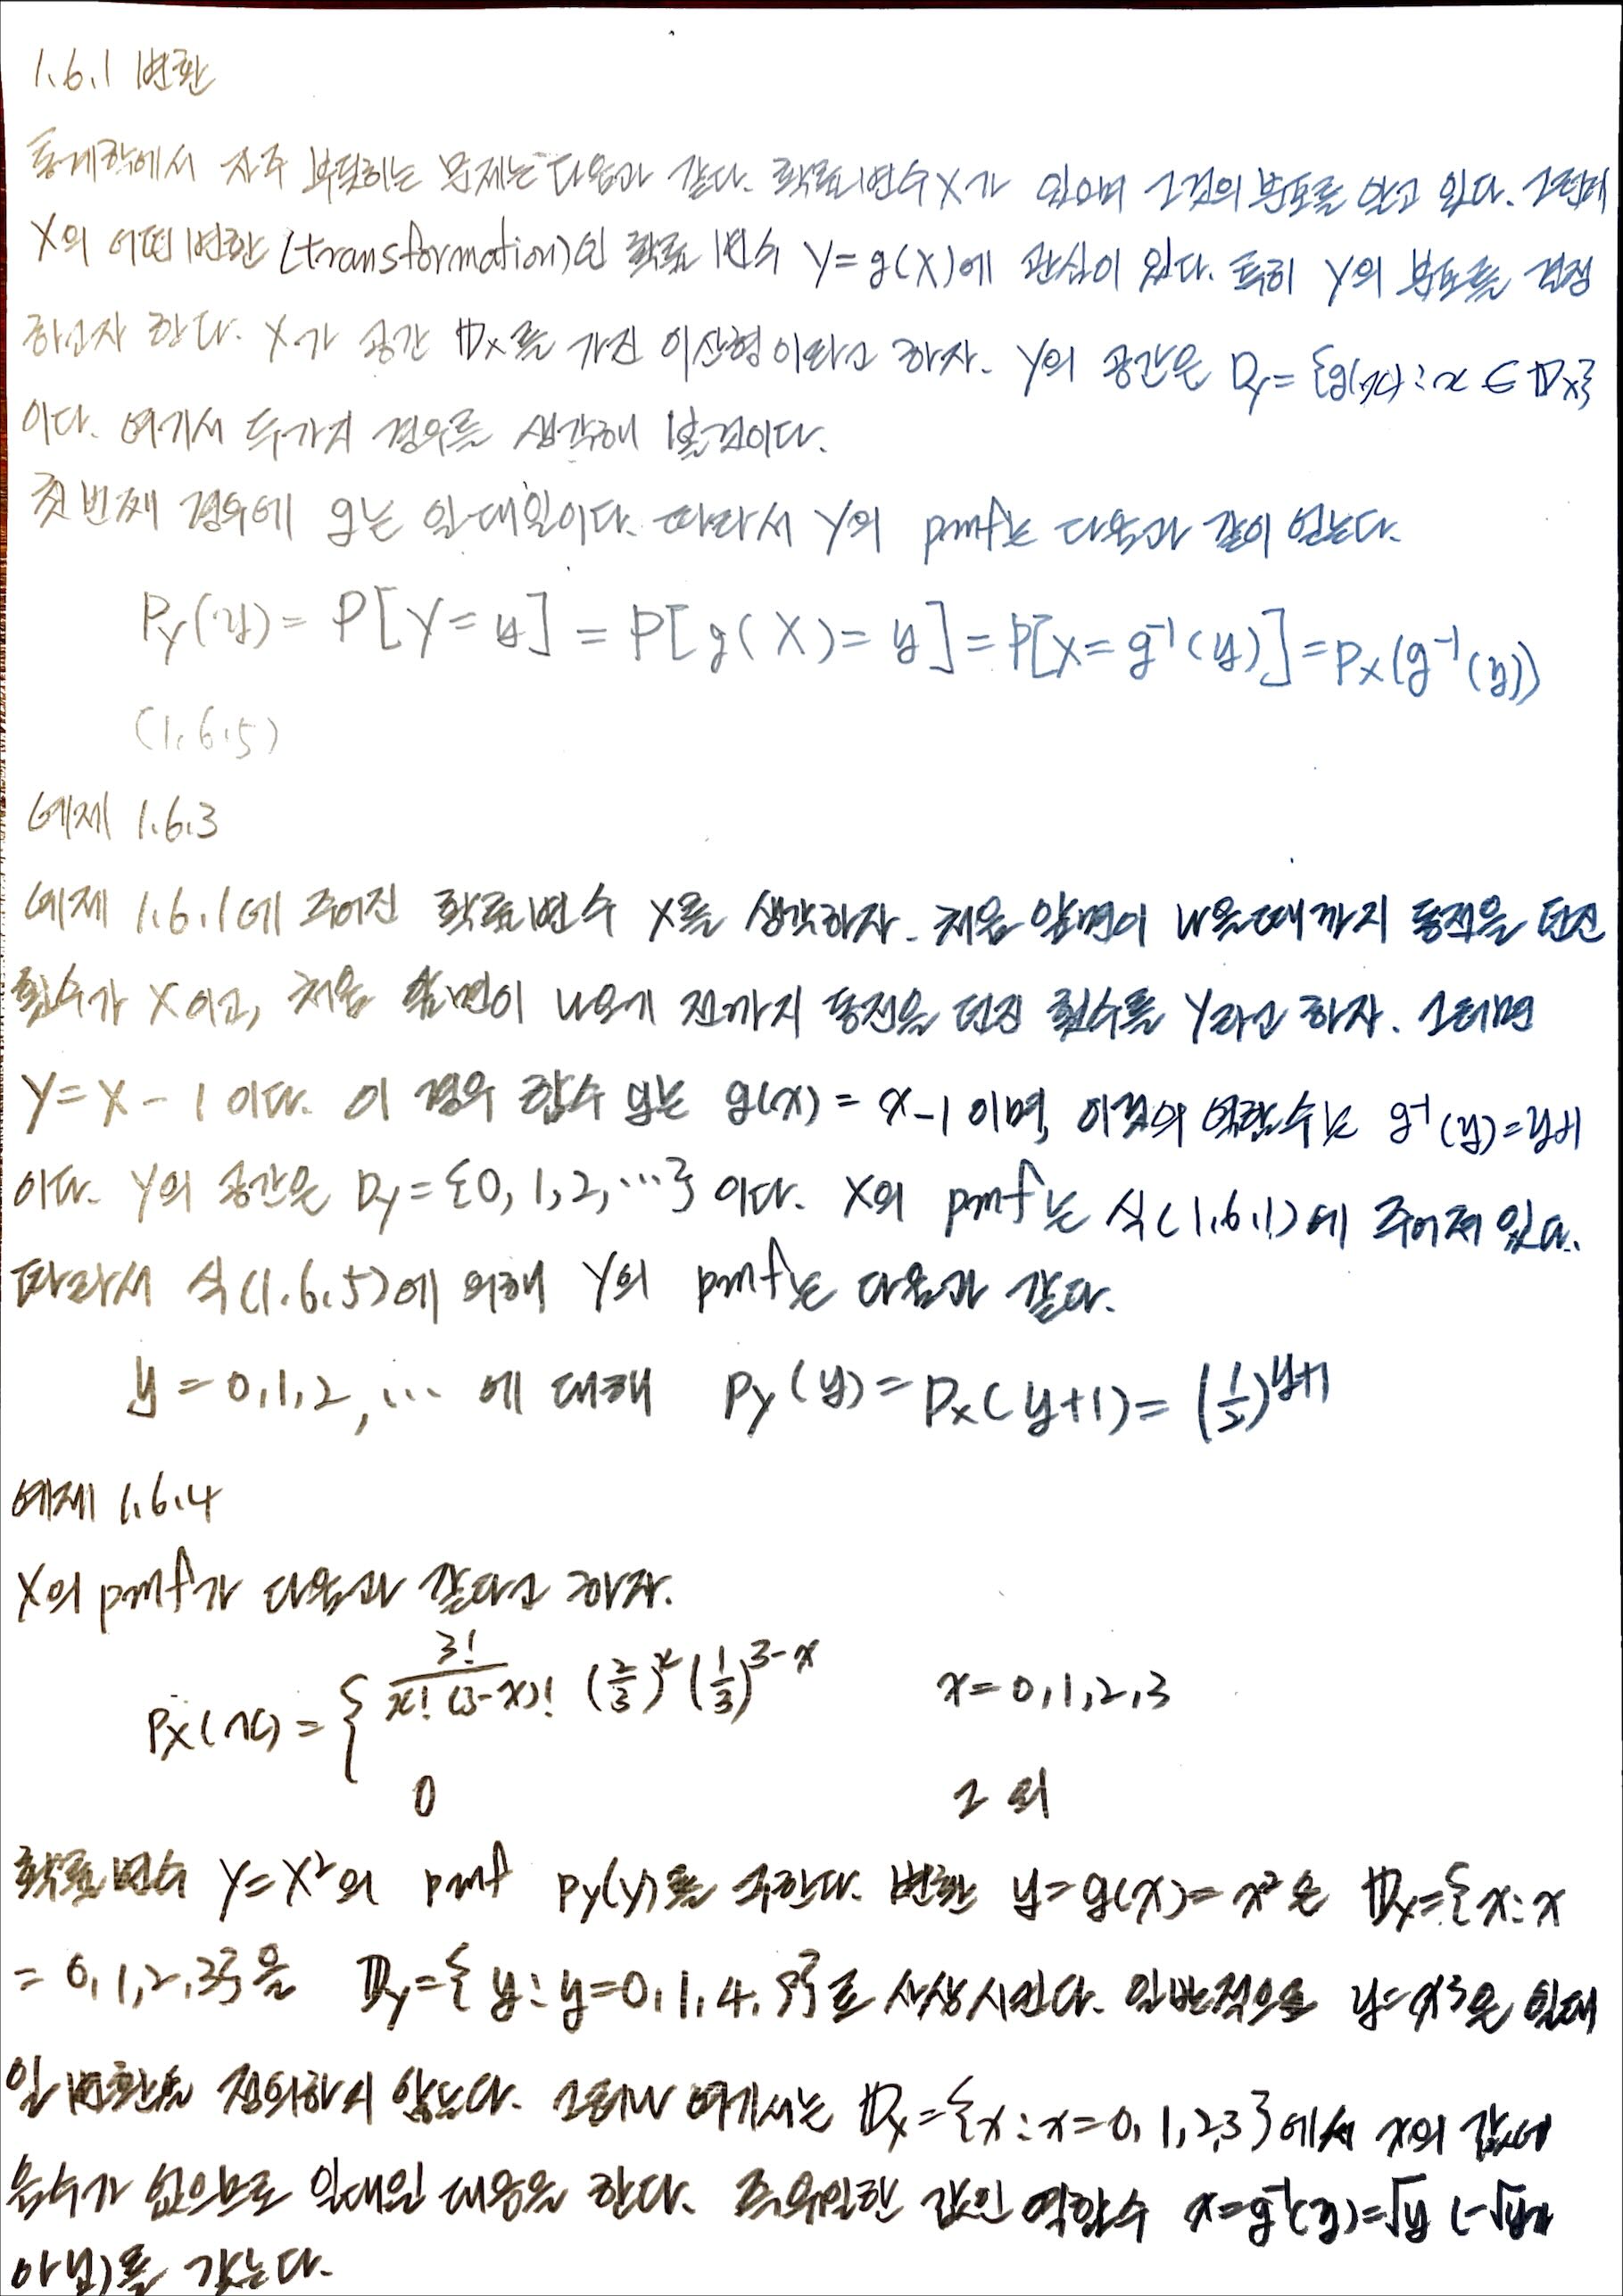 1.6.1 변환
통계학에서 자주 부딪히는 문제는 다음과 같다. 확률변수 X가 있으며 그것의 분포를 알고 있다. 그런데
X의 어떤 변환 (transformation)인 확률 변수 Y=g(X)에 관심이 있다. 특히 Y의 분포를 결정
하고자 한다. X가 공간 Dx를 가진 이산형이라고 하자. Y의 공간은 Dy = {g(x) : x ∈ Dx}
이다. 여기서 두가지 경우를 생각해 볼것이다.
첫번째 경우에 g는 일대일이다. 따라서 Y의 pmf는 다음과 같이 얻는다.
Py(y) = P[Y=y] = P[g(X)=y] = P[X=g⁻¹(y)] = Px(g⁻¹(y))
(1.6.5)
예제 1.6.3
예제 1.6.1에 주어진 확률변수 X를 생각하자. 처음 앞면이 나올때까지 동전을 던진
횟수가 X이고, 처음 앞면이 나오기 전까지 동전을 던진 횟수를 Y라고 하자. 그러면
Y=X-1 이다. 이 경우 함수 g는 g(x) = x-1 이며, 이것의 역함수는 g⁻¹(y)=y+1
이다. Y의 공간은 Dy = {0, 1, 2, ⋯} 이다. X의 pmf는 식(1.6.1)에 주어져 있다.
따라서 식(1.6.5)에 의해 Y의 pmf는 다음과 같다.
y = 0,1,2, ⋯ 에 대해 Py(y) = Px(y+1) = (1/2)^(y+1)
예제 1.6.4
X의 pmf가 다음과 같다고 하자.
Px(x) = { 3!/(x!(3-x)!) (2/3)^x (1/3)^(3-x) x=0,1,2,3
0 그 외
확률변수 Y=X²의 pmf Py(y)를 구한다. 변환 y=g(x)=x²은 Dx={x:x
= 0,1,2,3}을 Dy={y:y=0,1,4,9}로 사상시킨다. 일반적으로 y=x³은 일대
일 변환을 정의하지 않는다. 그러나 여기서는 Dx={x:x=0,1,2,3}에서 x의 값에
음수가 없으므로 일대일 대응을 한다. 즉, 유일한 값인 역함수 x=g⁻¹(y)=√y (-√y가
아님)를 갖는다.